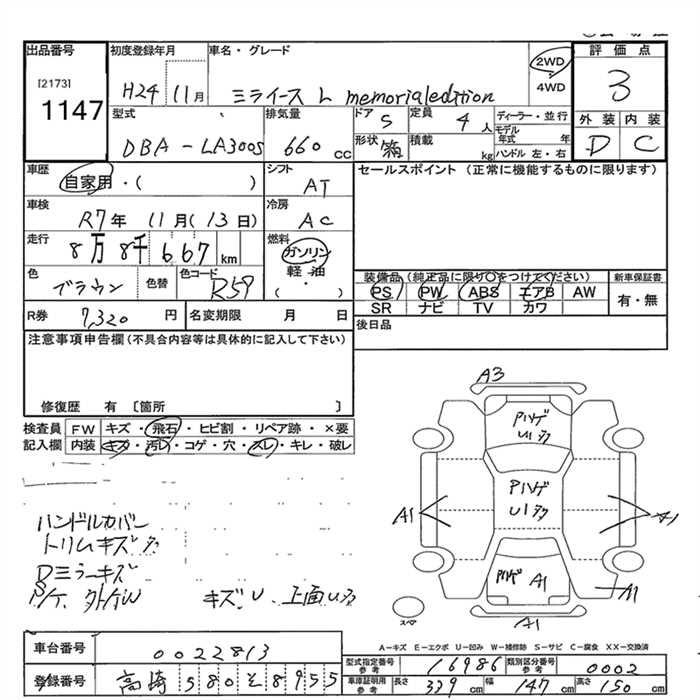 出品番号 初度登録年月 車名・グレード 評価点
[2173] 1147 H24 11月 ミライース L memorialedition 2WD 4WD 3
型式 排気量 ドア 定員 ディーラー・並行 外装 内装
DBA-LA300S 660cc 5 4人 モデル年式 年 D C
形状 箱 積載 kg ハンドル 左・右
車歴 自家用・( ) シフト AT セールスポイント (正常に機能するものに限ります)
車検 R7年 11月(13日) 冷房 AC
走行 8万8千667km 燃料 ガソリン 軽油 ・ ( )
色 ブラウン 色替 色コード R59
装備品(純正品に限り○をつけてください) 新車保証書
PS PW ABS エアB AW 有・無
SR ナビ TV カワ
R券 7,320円 名変期限 月 日 後日品
注意事項申告欄(不具合内容等は具体的に記入して下さい)
修復歴 有 〔箇所 〕
検査員 FW キズ・飛石・ヒビ割・リペア跡・×要
記入欄 内装 キズ・汚レ・コゲ・穴・スレ・キレ・破レ
A3
Pハゲ
U1多
Pハゲ
U1多
A1
Pハゲ A1
A1
A1
スペア
ハンドルカバー
トリムキズ多
Dミラーキズ
キズ U、上面U多
A-キズ E-エクボ U-凹み W-補修跡 S-サビ C-腐食 XX-交換済
車台番号 0022813
型式指定番号 参考 16986 類別区分番号 参考 0002
登録番号 高崎 580 そ 8955
車庫証明用 参考 長さ 339cm 幅 147cm 高さ 150cm